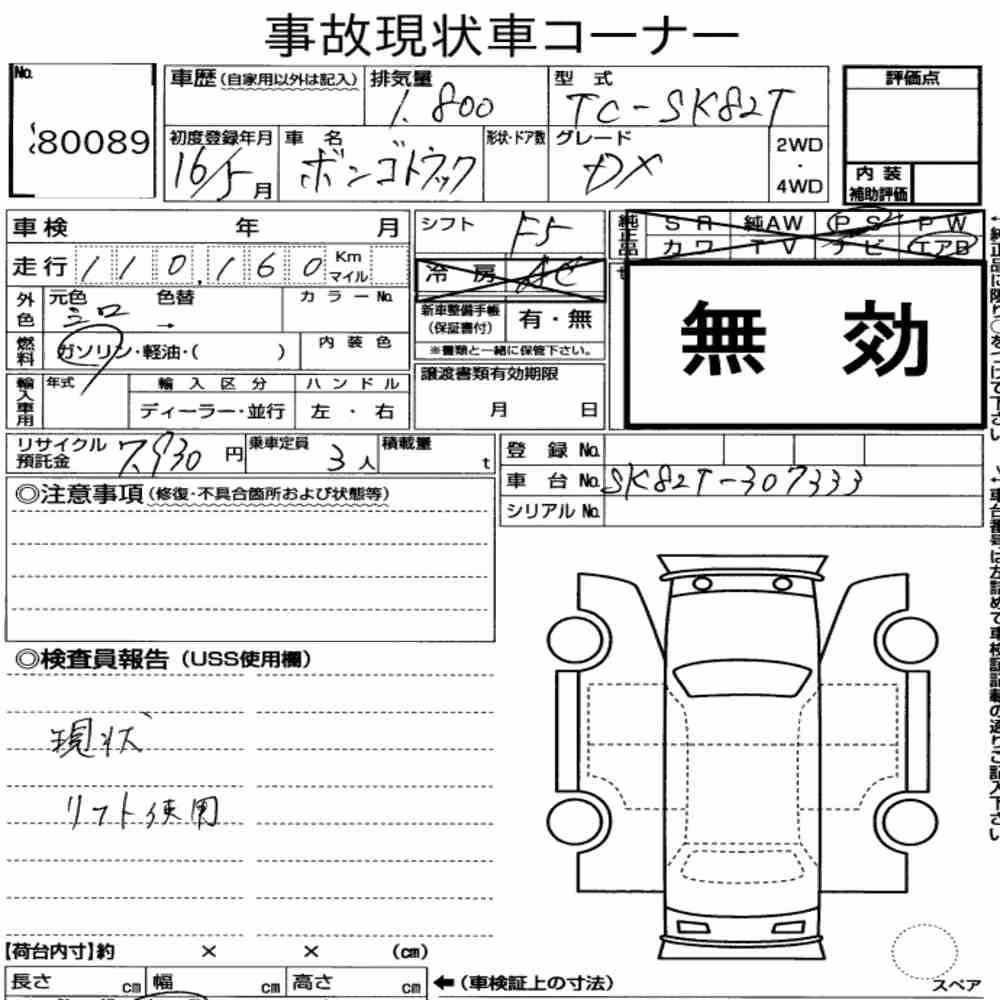 事故現状車コーナー
No.
80089
車歴(自家用以外は記入)
排気量
1.800
型 式
TC-SK82T
評価点
初度登録年月
16/5月
車 名
ボンゴトラック
形状・ドア数
グレード
DX
2WD
・
4WD
内 装
補助評価
車検 年 月
シフト
F5
純正品
SR 純AW PS PW
カワ TV ナビ エアB
走行 110,160 Km
マイル
冷 房 AC
外色
元色 色替
シロ →
カラーNo.
新車整備手帳
(保証書付)
有・無
※書類と一緒に保管下さい。
無 効
燃料
ガソリン・軽油・( )
内 装 色
輸入車用
年式
輸 入 区 分
ハ ン ド ル
ディーラー・並行
左 ・ 右
譲渡書類有効期限
月 日
リサイクル
預託金
7,930円
乗車定員
3人
積載量
t
登 録 No.
車 台 No. SK82T-307333
シリアル No.
◎注意事項(修復・不具合箇所および状態等)
◎検査員報告(USS使用欄)
現状
リフト使用
【荷台内寸】約 × × (cm)
長さ cm 幅 cm 高さ cm
←(車検証上の寸法)
スペア
←純正品に限り○をつけて下さい
←車台番号は左詰めで車検証記載の通りご記入下さい